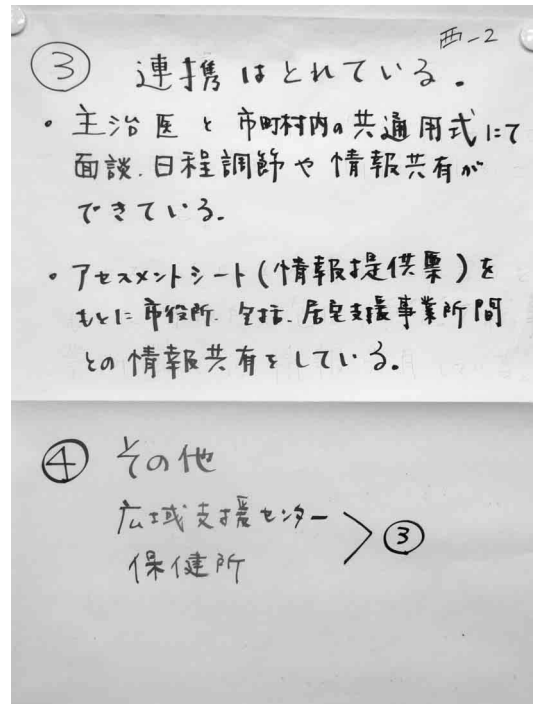 西-2
③ 連携はとれている.
・主治医と市町村内の共通用式にて
面談.日程調節や情報共有が
できている.
・アセスメントシート(情報提供票)を
もとに市役所.包括.居宅支援事業所間
との情報共有をしている.
④ その他
広域支援センター
保健所
> ③